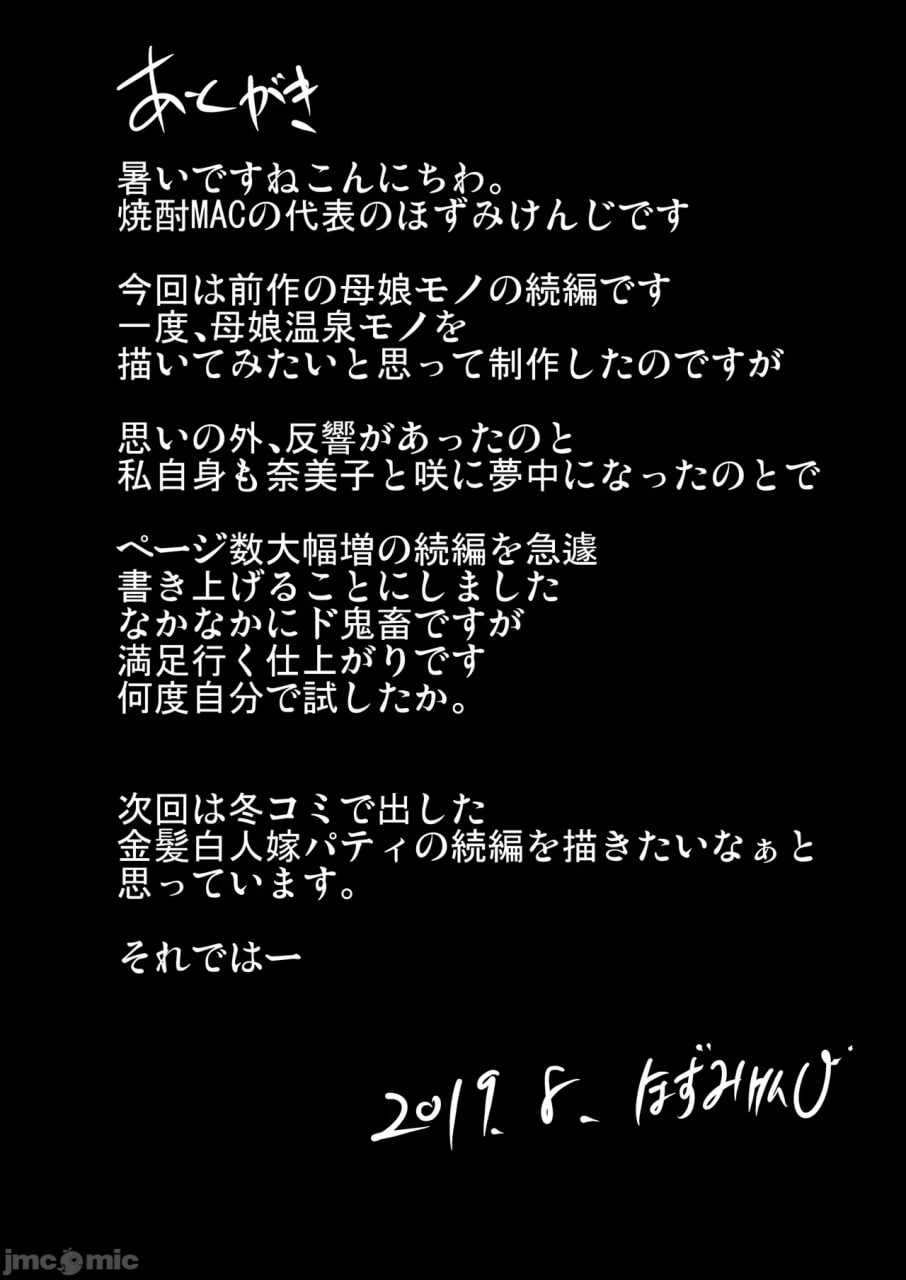 あとがき
暑いですねこんにちわ。
焼酎MACの代表のほずみけんじです
今回は前作の母娘モノの続編です
一度、母娘温泉モノを
描いてみたいと思って制作したのですが
思いの外、反響があったのと
私自身も奈美子と咲に夢中になったのとで
ページ数大幅増の続編を急遽
書き上げることにしました
なかなかにド鬼畜ですが
満足行く仕上がりです
何度自分で試したか。
次回は冬コミで出した
金髪白人嫁パティの続編を描きたいなぁと
思っています。
それではー
2019.8. ほずみけんじ
jmcomic